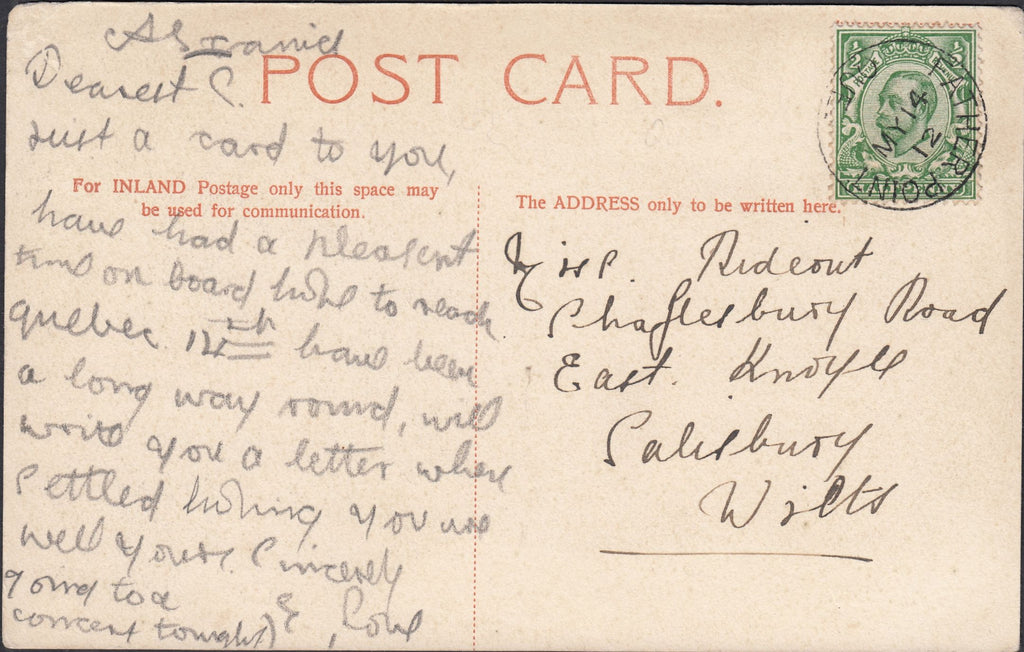 Dearest C.
POST CARD.
Just a card to you,
For INLAND Postage only this space may
be used for communication.
have had a pleasent
time on board hope to reach
Quebec 14th have been
a long way round, will
write you a letter when
settled hoping you are
well yours Sincerely
going to a
concert tonight)
The ADDRESS only to be written here.
Rideout
Shaftesbury Road
East. Knoyle
Salisbury
Wilts
FATHER POINT
MY 14
12